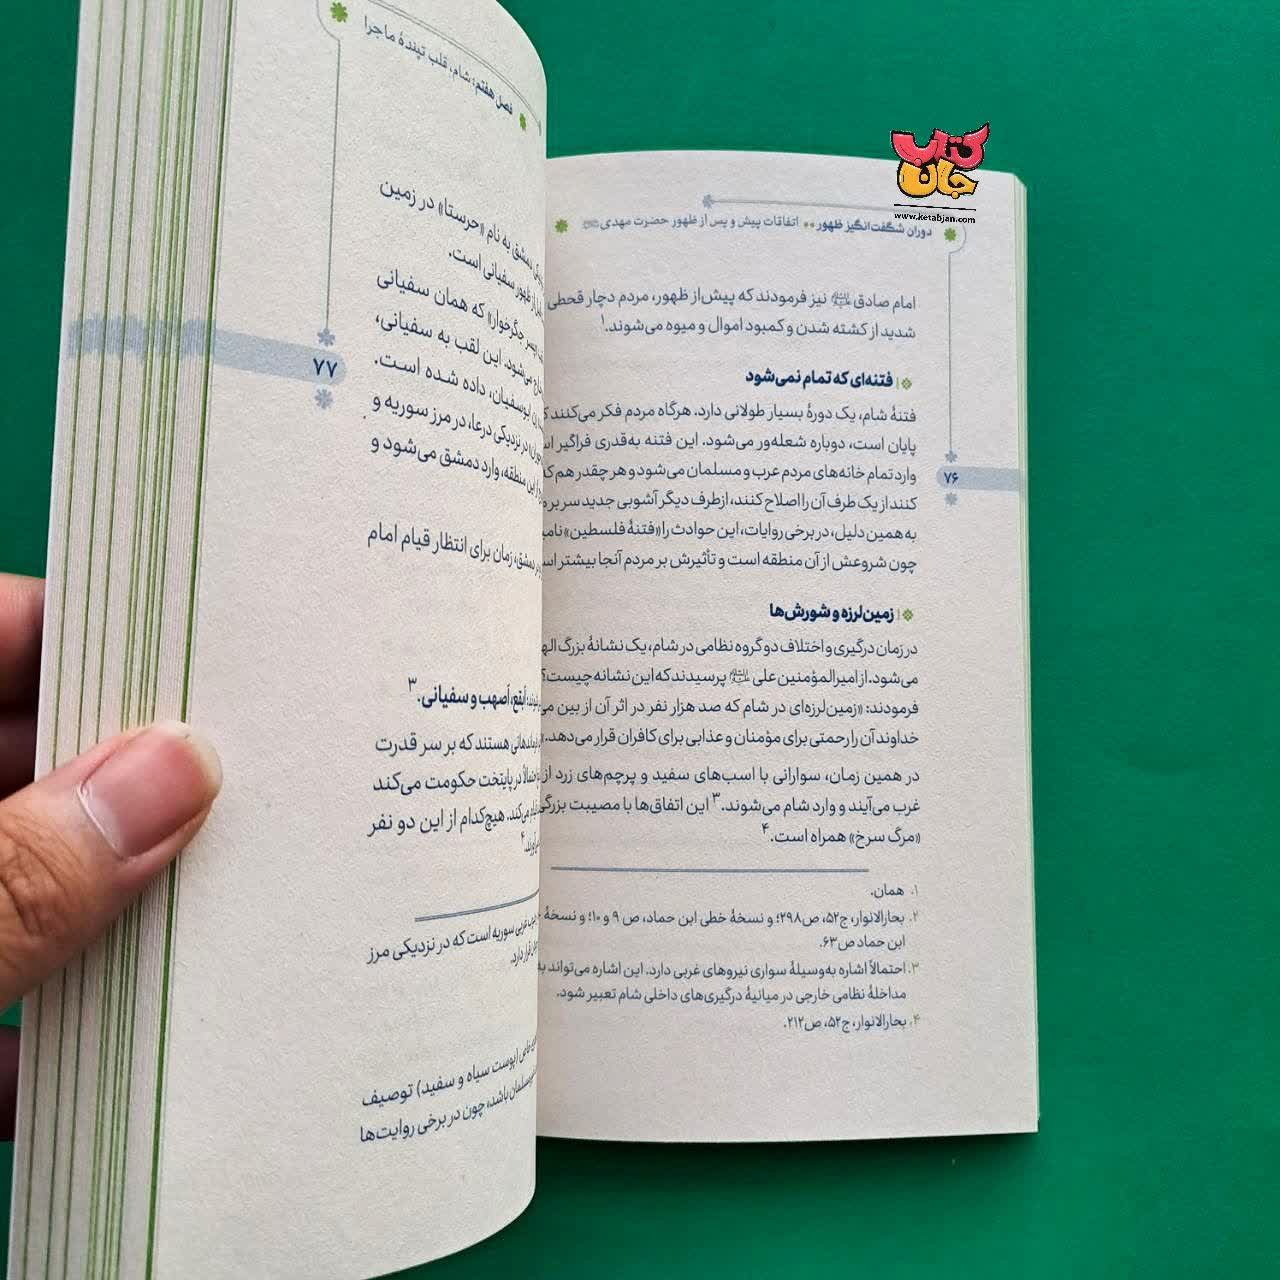 کتاب جان
www.ketabjan.com
دوران شگفت‌انگیز ظهور •• اتفاقات پیش و پس از ظهور حضرت مهدی
امام صادق نیز فرمودند که پیش‌از ظهور، مردم دچار قحطی
شدید از کشته شدن و کمبود اموال و میوه می‌شوند.۱
فتنه‌ای که تمام نمی‌شود
فتنهٔ شام، یک دورهٔ بسیار طولانی دارد. هرگاه مردم فکر می‌کنند
پایان است، دوباره شعله‌ور می‌شود. این فتنه به‌قدری فراگیر
وارد تمام خانه‌های مردم عرب و مسلمان می‌شود و هر چقدر هم که
کنند از یک طرف آن را اصلاح کنند، ازطرف دیگر آشوبی جدید سر
به همین دلیل، در برخی روایات، این حوادث را «فتنهٔ فلسطین»
چون شروعش از آن منطقه است و تأثیرش بر مردم آنجا بیشتر
۷۶
زمین‌لرزه و شورش‌ها
در زمان درگیری و اختلاف دو گروه نظامی در شام، یک نشانهٔ بزرگ
می‌شود. از امیرالمؤمنین علی پرسیدند که این نشانه چیست؟
فرمودند: «زمین‌لرزه‌ای در شام که صد هزار نفر در اثر آن از بین
خداوند آن را رحمتی برای مؤمنان و عذابی برای کافران قرار می‌دهد.
در همین زمان، سوارانی با اسب‌های سفید و پرچم‌های زرد از
غرب می‌آیند و وارد شام می‌شوند.۳ این اتفاق‌ها با مصیبت بزرگی
«مرگ سرخ» همراه است.۴
۱. همان.
۲. بحارالانوار، ج۵۲، ص۲۹۸؛ و نسخهٔ خطی ابن حماد، ص ۹ و ۱۰؛ و نسخهٔ
ابن حماد ص۶۳.
۳. احتمالاً اشاره به‌وسیلهٔ سواری نیروهای غربی دارد. این اشاره می‌تواند به
مداخلهٔ نظامی خارجی در میانهٔ درگیری‌های داخلی شام تعبیر شود.
۴. بحارالانوار، ج۵۲، ص۲۱۲.
فصل هفتم: شام، قلب تپندهٔ ماجرا
دمشق به نام «حرستا» در زمین
از ظهور سفیانی است.
جگرخوار» که همان سفیانی
می‌شود. این لقب به سفیانی،
ابوسفیان، داده شده است.
در نزدیکی درعا، در مرز سوریه و
این منطقه، وارد دمشق می‌شود و
۷۷
دمشق، زمان برای انتظار قیام امام
ابقع، اصهب و سفیانی.۳
هستند که بر سر قدرت
احتمالاً در پایتخت حکومت می‌کند
می‌کند. هیچ‌کدام از این دو نفر
غربی سوریه است که در نزدیکی مرز
قرار دارد.
(پوست سیاه و سفید) توصیف
باشد، چون در برخی روایت‌ها